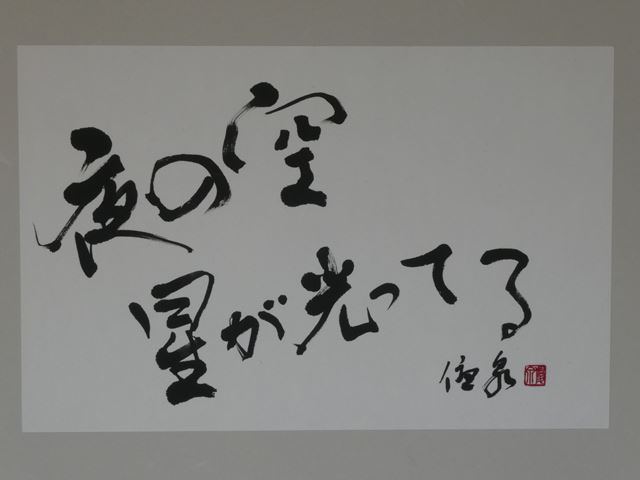 夜の空
星が光ってる